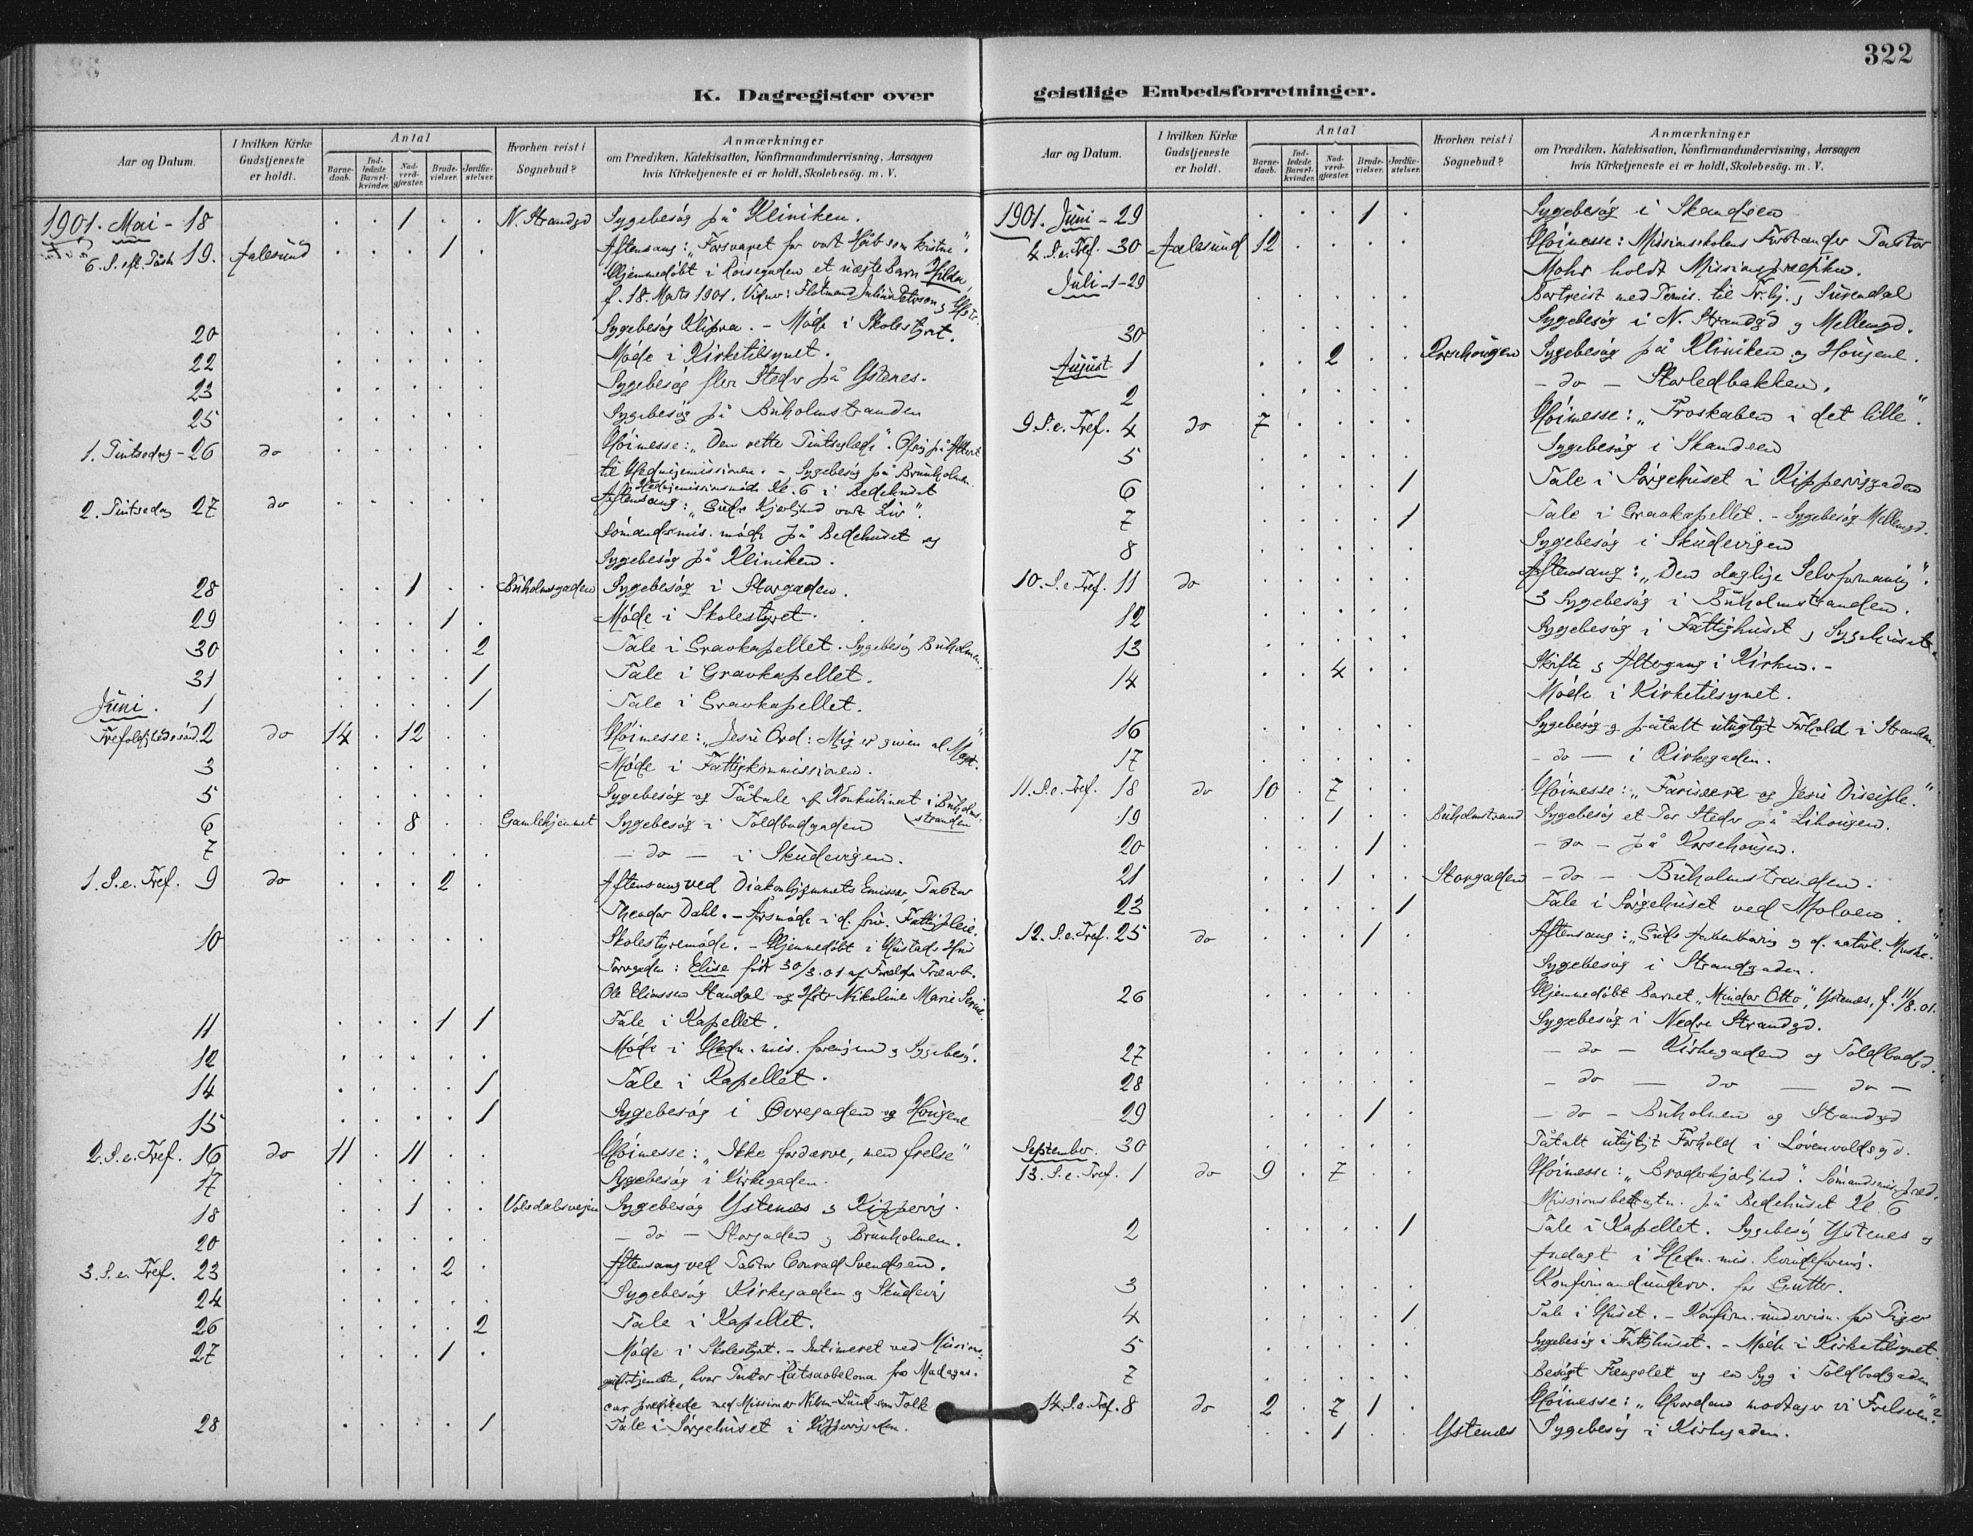 322
K. Dagregister over geistlige Embedsforretninger.
Aar og Datum.
I hvilken Kirke Gudstjeneste er holdt.
Antal
Barnedaab.
Indledede Barselkvinder.
Nadverdgjæster.
Brudevielser.
Jordfæstelser.
Hvorhen reist i Sognebud?
Anmærkninger
om Prædiken, Katekisation, Konfirmandundervisning, Aarsagen
hvis Kirketjeneste ei er holdt, Skolebesøg. m. V.
1901. Mai - 18 1 N. Strandgd Sygebesøg på Kliniken.
6. S. eft. Påsk 19. Aalesund 1 Aftensang: „Forsvaret for vort Håb som kristne".
Hjemmedøbt i Røisegaden et uægte Barn Hilda,
f. 18. Marts 1901.
20 Sygebesøg Klipra. - Møde i Skolestyret.
22 Møde i Kirketilsynet.
23 Sygebesøg flere Steder på Ystenes.
25 Sygebesøg på Buholmstranden
1. Pintsedag - 26 do Høimesse: „Den rette Pintseglæde".
til Hedningemissionen. - Sygebesøg på Brunholmen.
Hedningemissionsmøde Kl. 6 i Bedehuset
2. Pintsedag 27 do Aftensang: „Guds Kjerlighed vort Liv".
Sømandsmis. møde på Bedehuset og
Sygebesøg på Kliniken.
28 1 Buholmsgaden Sygebesøg i Storgaden.
29 1 Møde i Skolestyret.
30 2 Tale i Gravkapellet. Sygebesøg Buholmen.
31 1 Tale i Gravkapellet.
Juni. 1 1 Tale i Gravkapellet.
Trefoldighedssønd. 2 do 14 12 Høimesse: „Jesu Ord: Mig er given al Magt".
3 Møde i Fattigkommissionen.
5 Sygebesøg og Påtale af Konkubinat i Buholmstranden
6 8 Gamlehjemmet Sygebesøg i Toldbodgaden
7 - do - i Skudevigen.
1. S. e. Tref. 9 do 2 Aftensang ved Diakonhjemmets Emissær, Pastor
Theodor Dahl. - Årsmøde i d. friv. Fattigpleie.
10 Skolestyremøde. - Hjemmedøbt i Hustads Hus
Torvgaden: Elise født 30/3.01 af Forældre Træarb.
Ole Elinssen Standal og Hstr Nikoline Marie
11 1 1 Tale i Kapellet.
12 Møde i Hedn. mis. foreningen og Sygebesøg.
14 1 Tale i Kapellet.
15 1 Sygebesøg i Øvregaden og Hougene
2. S. e. Tref. 16 do 11 11 Høimesse: „Ikke fordærve, men frelse"
17 Sygebesøg i Kirkegaden.
18 1 Volsdalsvejen Sygebesøg Ystenes og Kippervig.
20 - do - Storgaden og Brunholmen.
3. S. e. Tref. 23 2 Aftensang ved Pastor Conrad Svendsen.
24 Sygebesøg Kirkegaden og Skudevig
26 2 Tale i Kapellet.
27 1 Møde i Skolestyret. - Intimeret ved Missionsgudstjeneste, hvor Pastor Ratsaobelona fra Madagascar prædikede med Missionær Nilsen-Lund som Tolk
28 1 Tale i Sørgehuset i Kipperviggaden.
K. Dagregister over geistlige Embedsforretninger.
Aar og Datum.
I hvilken Kirke Gudstjeneste er holdt.
Antal
Barnedaab.
Indledede Barselkvinder.
Nadverdgjæster.
Brudevielser.
Jordfæstelser.
Hvorhen reist i Sognebud?
Anmærkninger
om Prædiken, Katekisation, Konfirmandundervisning, Aarsagen
hvis Kirketjeneste ei er holdt, Skolebesøg. m. V.
1901. Juni - 29 1 Sygebesøg i Skandsen
4. S. e. Tref. 30 Aalesund 12 Høimesse: Missionsskolens Forstander Pastor
Mohr holdt Missionsprædiken.
Juli - 1-29 Bortreist med Permis. til Tr.hj. og Surendal
30 Sygebesøg i N. Strandgd og Mellemgd.
August 1 2 Korsehougen Sygebesøg på Kliniken og Hougene.
2 - do - Storledbakken.
9. S. e. Tref. 4 do 7 Høimesse: „Troskaben i det lille".
5 Sygebesøg i Skandsen
6 1 Tale i Sørgehuset i Kipperviggaden
7 1 Tale i Gravkapellet. - Sygebesøg Mellemgd.
8 Sygebesøg i Skudevigen
10. S. e. Tref. 11 do Aftensang: „Den daglige Selvfornægtelse".
12 3 Sygebesøg i Buholmstranden.
13 Sygebesøg i Fattighuset og Sygehuset
14 4 Skrifte og Altergang i Kirken. -
Møde i Kirketilsynet.
16 Sygebesøg og påtalt utugtigt Forhold i Stranden.
17 - do - i Kirkegaden.
11. S. e. Tref. 18 do 10 7 Høimesse: „Farisæere og Jesu Disciple."
19 1 Buholmstrand Sygebesøg et Par Steder på Lihougen.
20 1 - do - på Korsehougen.
21 1 Storgaden - do - Buholmstranden.
23 1 Tale i Sørgehuset ved Molven.
12. S. e. Tref. 25 do 1 Aftensang: „Guds Aabenbaring og d. naturl. Mnske."
Sygebesøg i Strandgaden.
26 Hjemmedøbt Barnet „Mindor Otto", Ystenes, f. 11/8.01.
Sygebesøg i Nedre Strandgd.
27 - do - Kirkegaden og Toldbodgd.
28 - do - do - do -
29 1 - do - Buholmen og Strandgd
30 Påtalt utugtigt Forhold i Løvenvoldsgd.
September.
13. S. e. Tref. 1 do 9 7 Høimesse: „Broderkjærlighed". Sømandsmis. præd.
Missionsbetragtn. på Bedehuset Kl. 6
2 1 Tale i Kapellet. Sygebesøg Ystenes og
Andagt i Hedn. mis. kvindeforenig.
3 Konfirmandunderv. for Gutter.
4 1 Tale i Huset. - Konfirm. undervisn. for Piger
5 Sygebesøg i Fattighuset. - Møde i Kirketilsynet.
7 Besøgt Fængslet og en Syg i Toldbodgaden
14. S. e. Tref. 8 do 2 7 1 Høimesse: „Hvordan modtager vi Frelsen?"
1 Ystenes Sygebesøg i Kirkegaden.